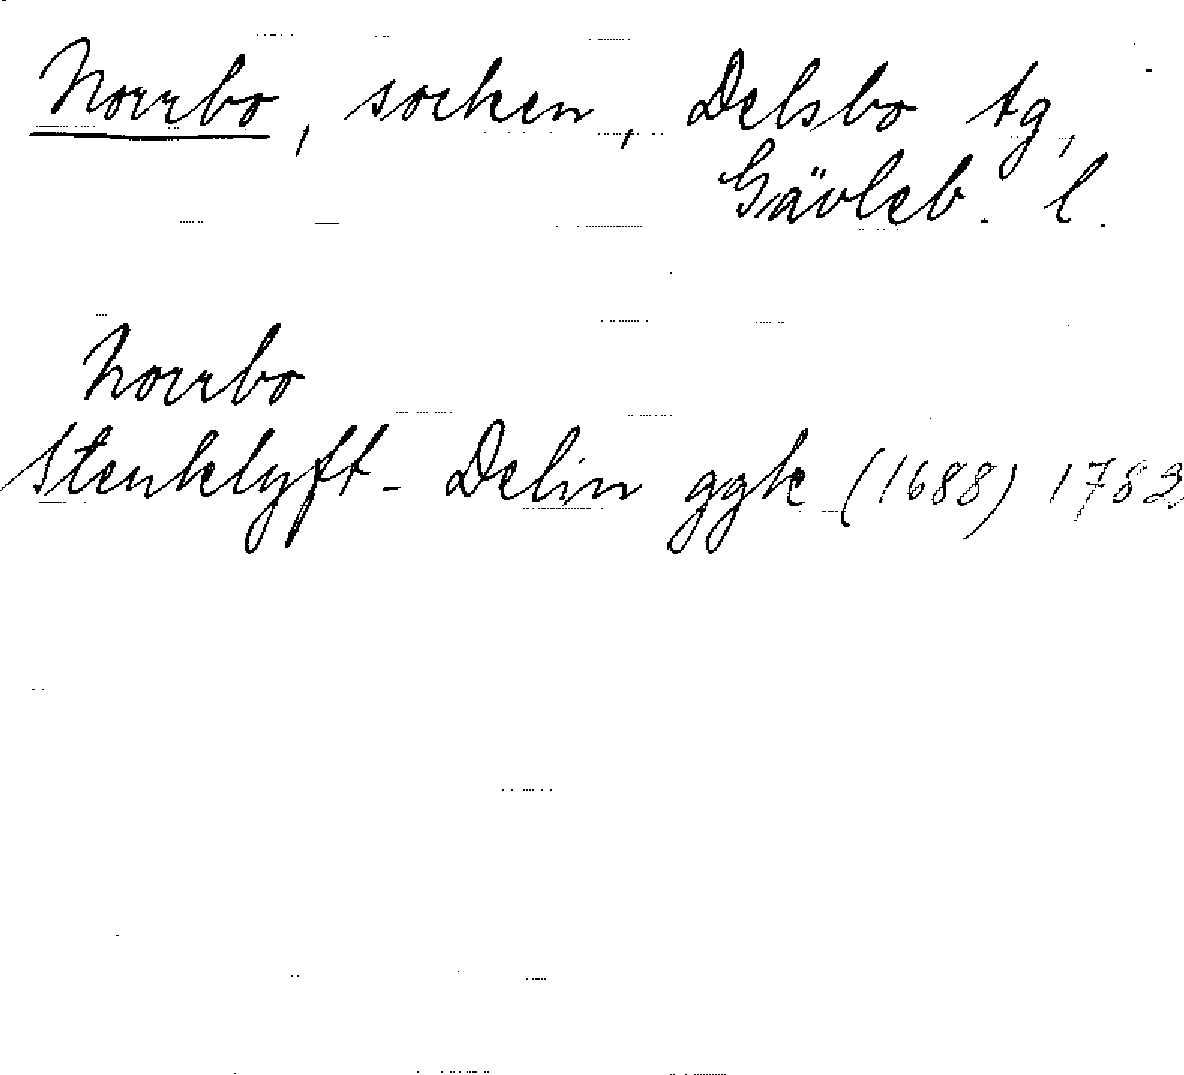 Norrbo, socken, Delsbo tg,
Gävleb. l.
Norrbo
Stenklyft - Delin ggk (1688) 1782